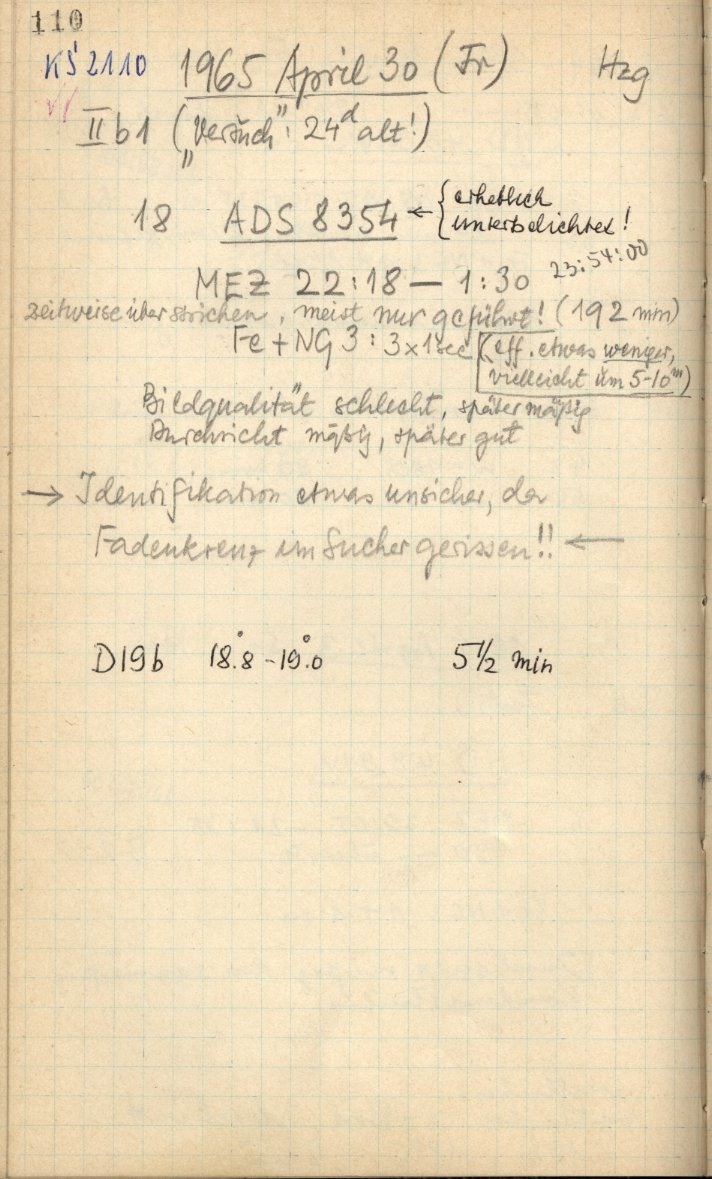 110
KŚ 2110 1965 April 30 (Fr) Hzg
II b 1 („Versuch": 24d alt!)
18 ADS 8354 ← { erheblich
unterbelichtet!
MEZ 22:18 — 1:30 23:54:00
zeitweise überstrichen, meist nur geführt! (192 min)
Fe + NG 3 : 3 x 1 sec (eff. etwas weniger,
vielleicht um 5-10m)
Bildqualität schlecht, später mäßig
Durchsicht mäßig, später gut
→ Identifikation etwas unsicher, da
Fadenkreuz im Sucher gerissen!! ←
D19b 18°.8 - 19°.0 5 1/2 min